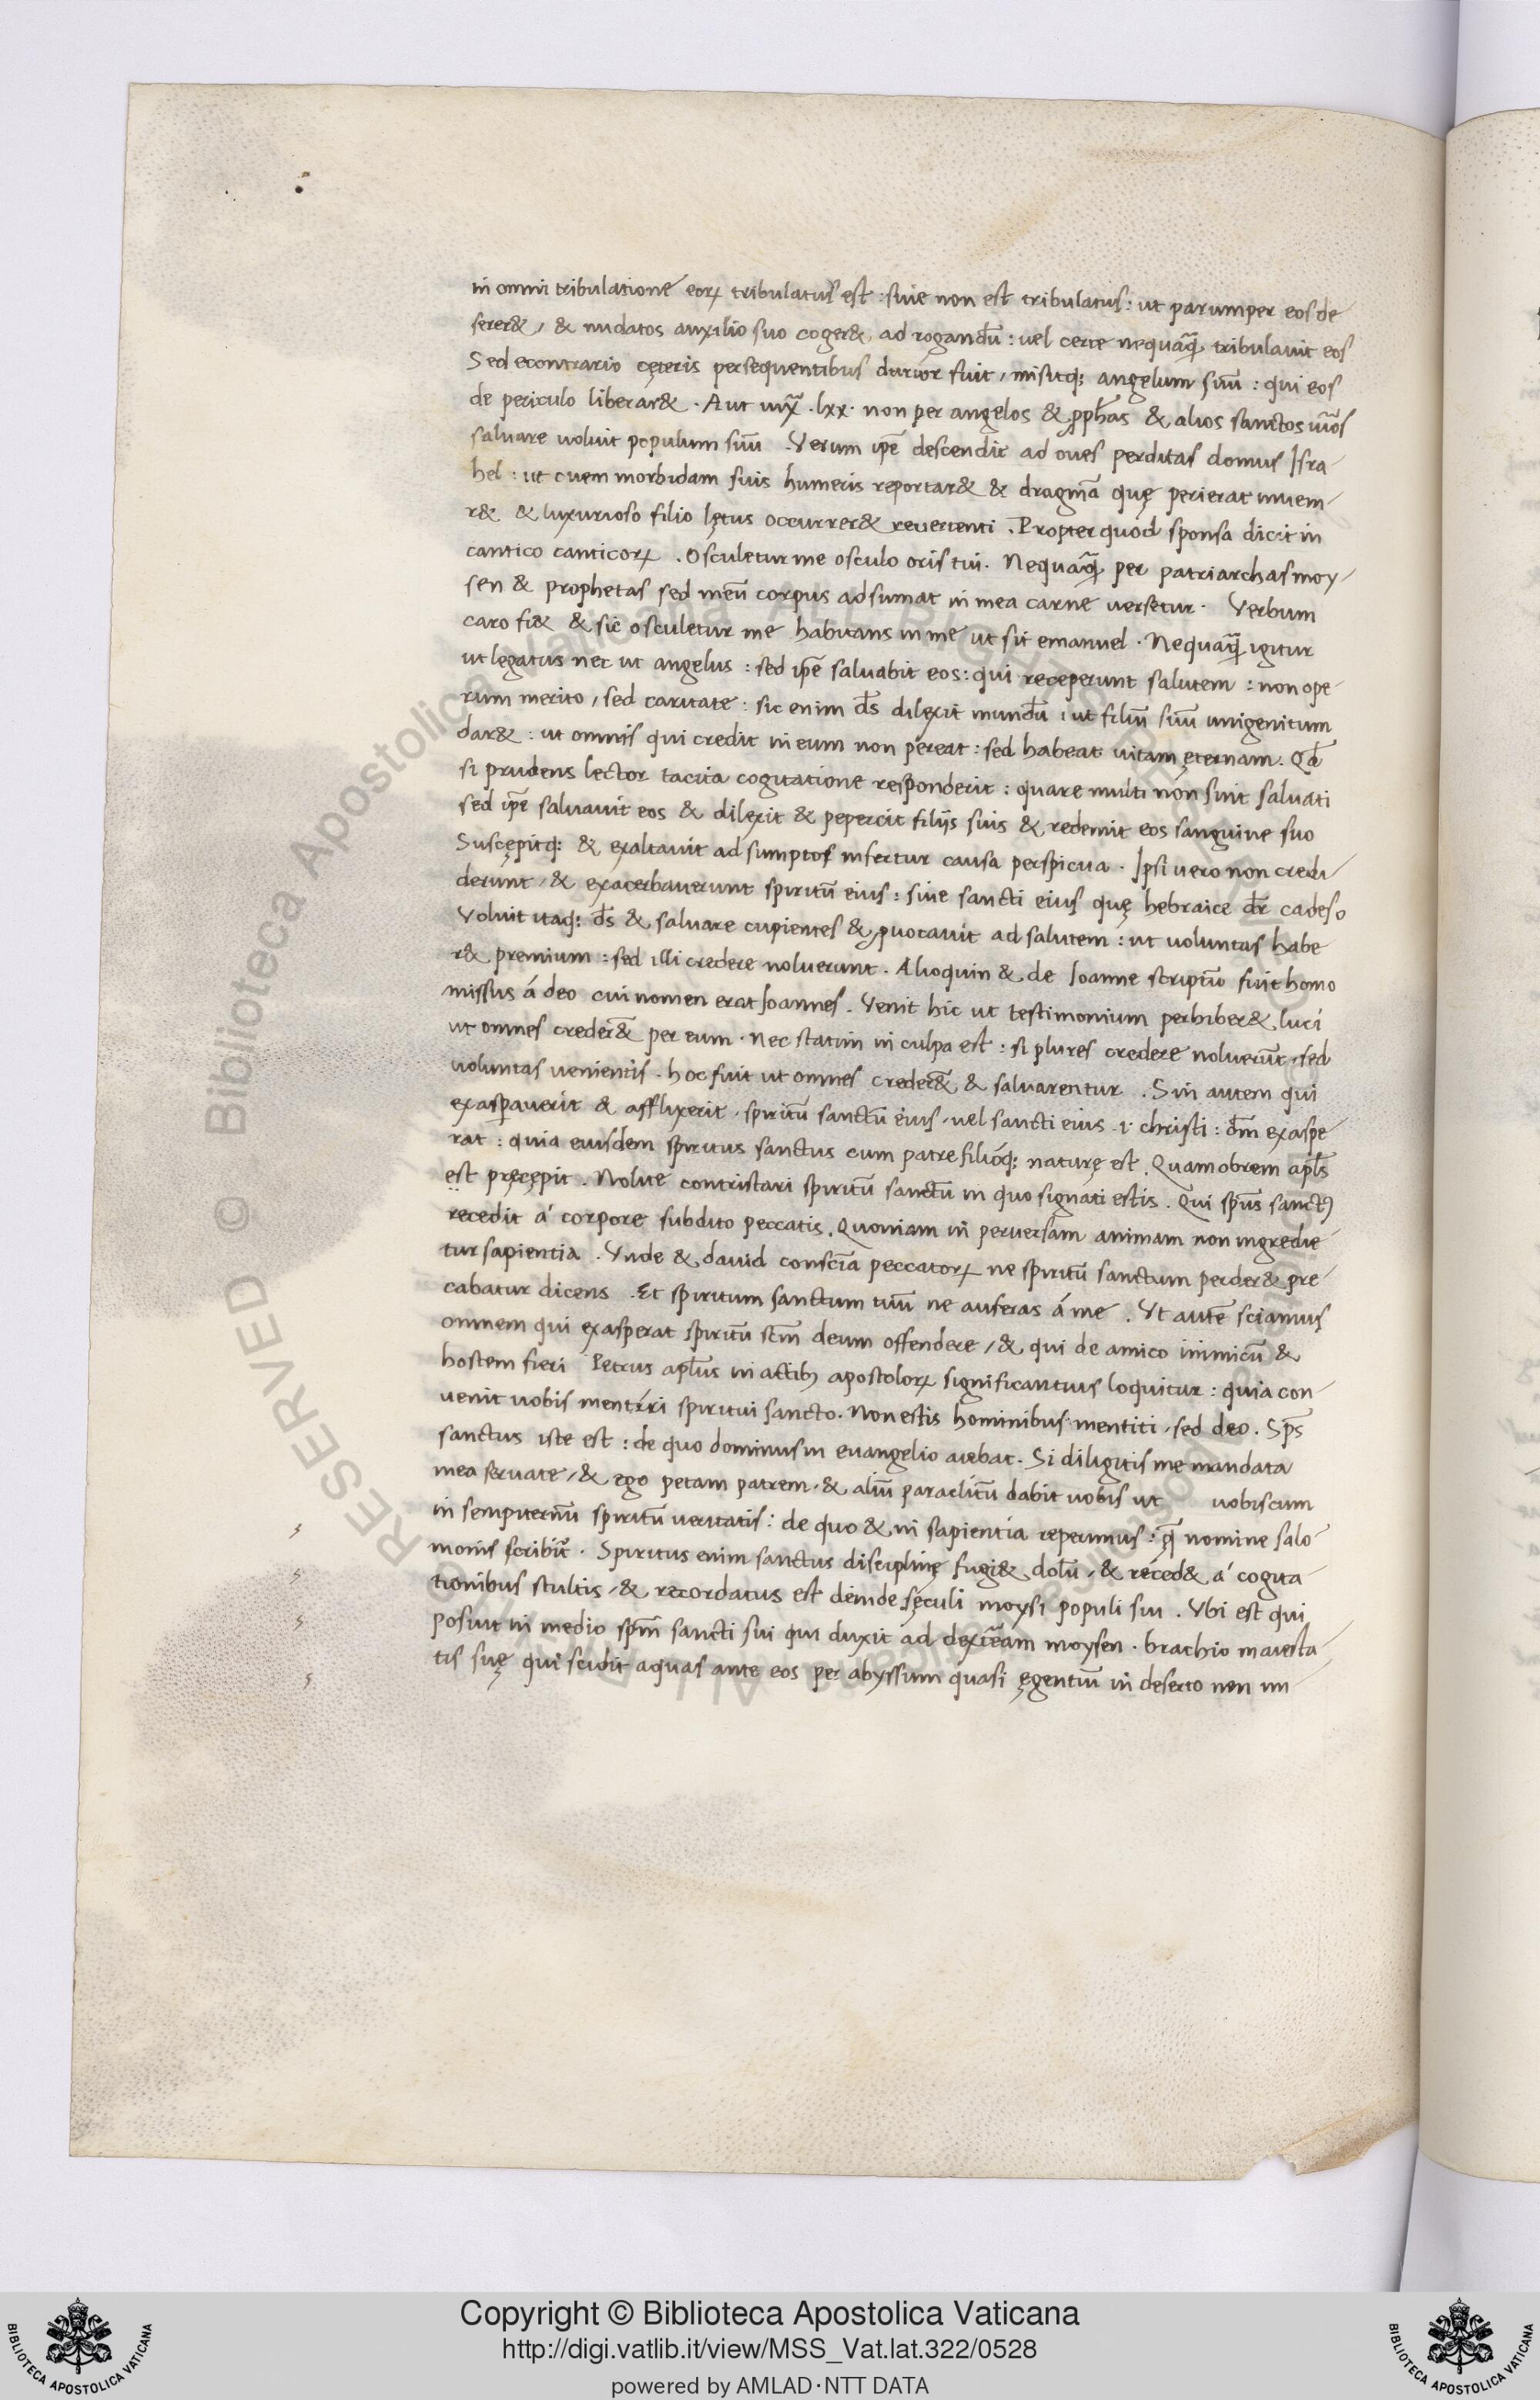 in omni tribulatione eoꝝ tribulatus est : siue non est tribulatus : ut parumper eos de
serer& / & nudatos auxilio suo coger& ad rogandū : uel certe nequaꝗ̄ tribulauit eos
Sed econtrario cęteris persequentibus durior fuit / misitq; angelum suū : qui eos
de periculo liberar& . Aut iuxͣ .lxx. non per angelos & ꝓph̄as & alios sanctos uiros
saluare uoluit populum suū . Verum ip̄e descendit ad oues perditas domus Isra-
hel : ut ouem morbidam suis humeris reportar& & dragmā quę perierat inueni-
r& & luxurioso filio lętus occurrer& reuertenti . Propter quod sponsa dicit in
cantico canticoꝝ . Osculetur me osculo oris tui . Nequaꝗ̄ per patriarchas moy-
sen & prophetas sed meū corpus adsumat in mea carne uersetur . Verbum
caro fi& & sic osculetur me habitans in me ut sit emanuel . Nequaꝗ̄ igitur
ut legatus nec ut angelus : sed ip̄e saluabit eos : qui receperunt salutem : non ope-
rum merito / sed caritate : sic enim d̄s dilexit mundū : ut filiū suū unigenitum
dar& : ut omnis qui credit in eum non pereat : sed habeat uitam ęternam . Qd̄
si prudens lector tacita cogitatione responderit : quare multi non sint saluati
sed ip̄e saluauit eos & dilexit & pepercit filijs suis & redemit eos sanguine suo
Suscępitq; & exaltauit ad sumptos infertur causa perspicua . Ipsi uero non credi-
derunt / & exacerbauerunt spiritū eius : siue sancti eius quę hebraice dr̄ cadeso
Voluit itaq; d̄s & saluare cupientes & ꝓuocauit ad salutem : ut uoluntas habe
r& premium : sed illi credere noluerunt . Alioquin & de Ioanne scriptū fuit homo
missus á deo cui nomen erat Ioannes . Venit hic ut testimonium perhiber& luci
ut omnes creder& per eum . nec statim in culpa est : si plures credere noluerūt / sed
uoluntas uenientis . hoc fuit ut omnes creder& & saluarentur . Sin autem qui
exasꝑauerit & afflixerit . spiritū sanctū eius . uel sancti eius .i. christi : dm̄ exaspe
rat : quia eiusdem spiritus sanctus cum patre filióq; naturę est . Quamobrem apl̄s
est pręcępit . Nolite contristari spiritū sanctū in quo signati estis . Qui sp̄us sanctꝰ
recedit á corpore subdito peccatis . Quoniam in peruersam animam non ingredie-
tur sapientia . Vnde & dauid consciā peccatoꝝ ne spiritū sanctum perder& pre-
cabatur dicens . Et spiritum sanctum tuū ne auferas á me . Vt autē sciamus
omnem qui exasperat spiritū scm̄ deum offendere / & qui de amico inimicū &
hostem fieri Petrus apl̄us in actibꝫ apostoloꝝ significantius loquitur : quia con-
uenit uobis mentiri spiritui sancto . Non estis hominibus mentiti . sed deo . Sp̄s
sanctus iste est : de quo dominus in euangelio aiebat . Si diligitis me mandata
mea seruate / & ego petam patrem . & aliū paraclitū dabit uobis ut uobiscum
in sempiternū spiritū ueritatis : de quo & in sapientia reperimus : nomine salo-
monis scribit̄ . Spiritus enim sanctus disciplinę fugi& dolū / & réced& á cogita-
tionibus stultis / & recordatus est deinde sęculi moysi populi sui . Vbi est qui
posuit in medio spm̄ sancti sui qui duxit ad dexterā moysen . brachio maiesta-
tis suę qui scidit aquas ante eos per abyssum quasi ęgentiū in deserto non im-
Copyright © Biblioteca Apostolica Vaticana
http://digi.vatlib.it/view/MSS_Vat.lat.322/0528
powered by AMLAD·NTT DATA
BIBLIOTECA APOSTOLICA VATICANA
BIBLIOTECA APOSTOLICA VATICANA